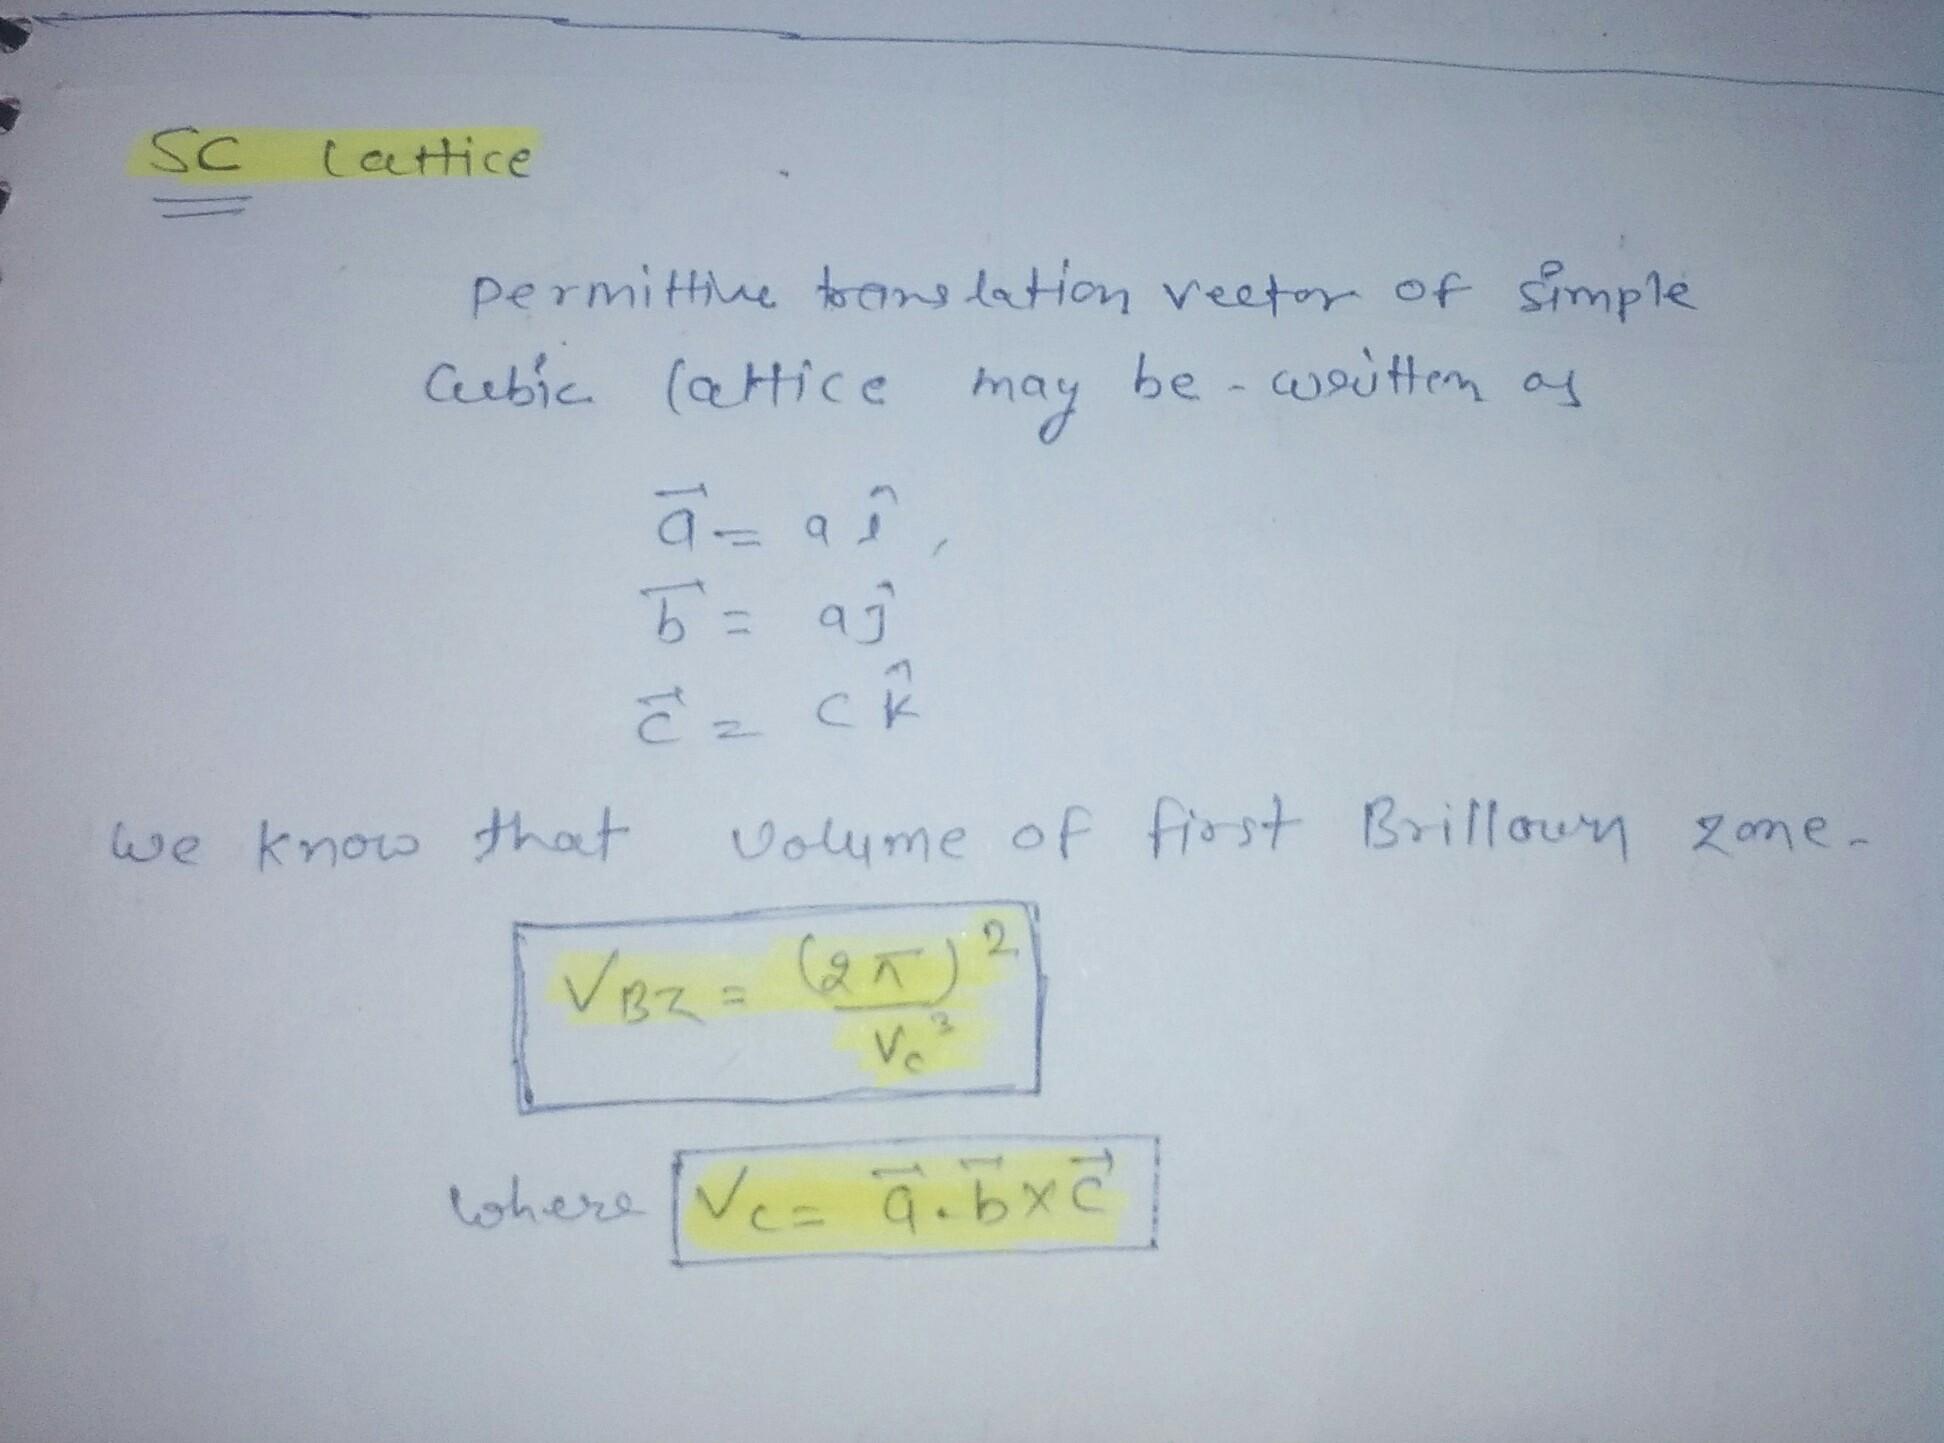 SC Lattice
Permittive translation vector of simple
Cubic lattice may be - written as
a⃗ = a î,
b⃗ = a ĵ
c⃗ = c k̂
We know that volume of first Brillouin zone -
V_BZ = (2π)² / V_c³
where V_c = a⃗ . b⃗ × c⃗